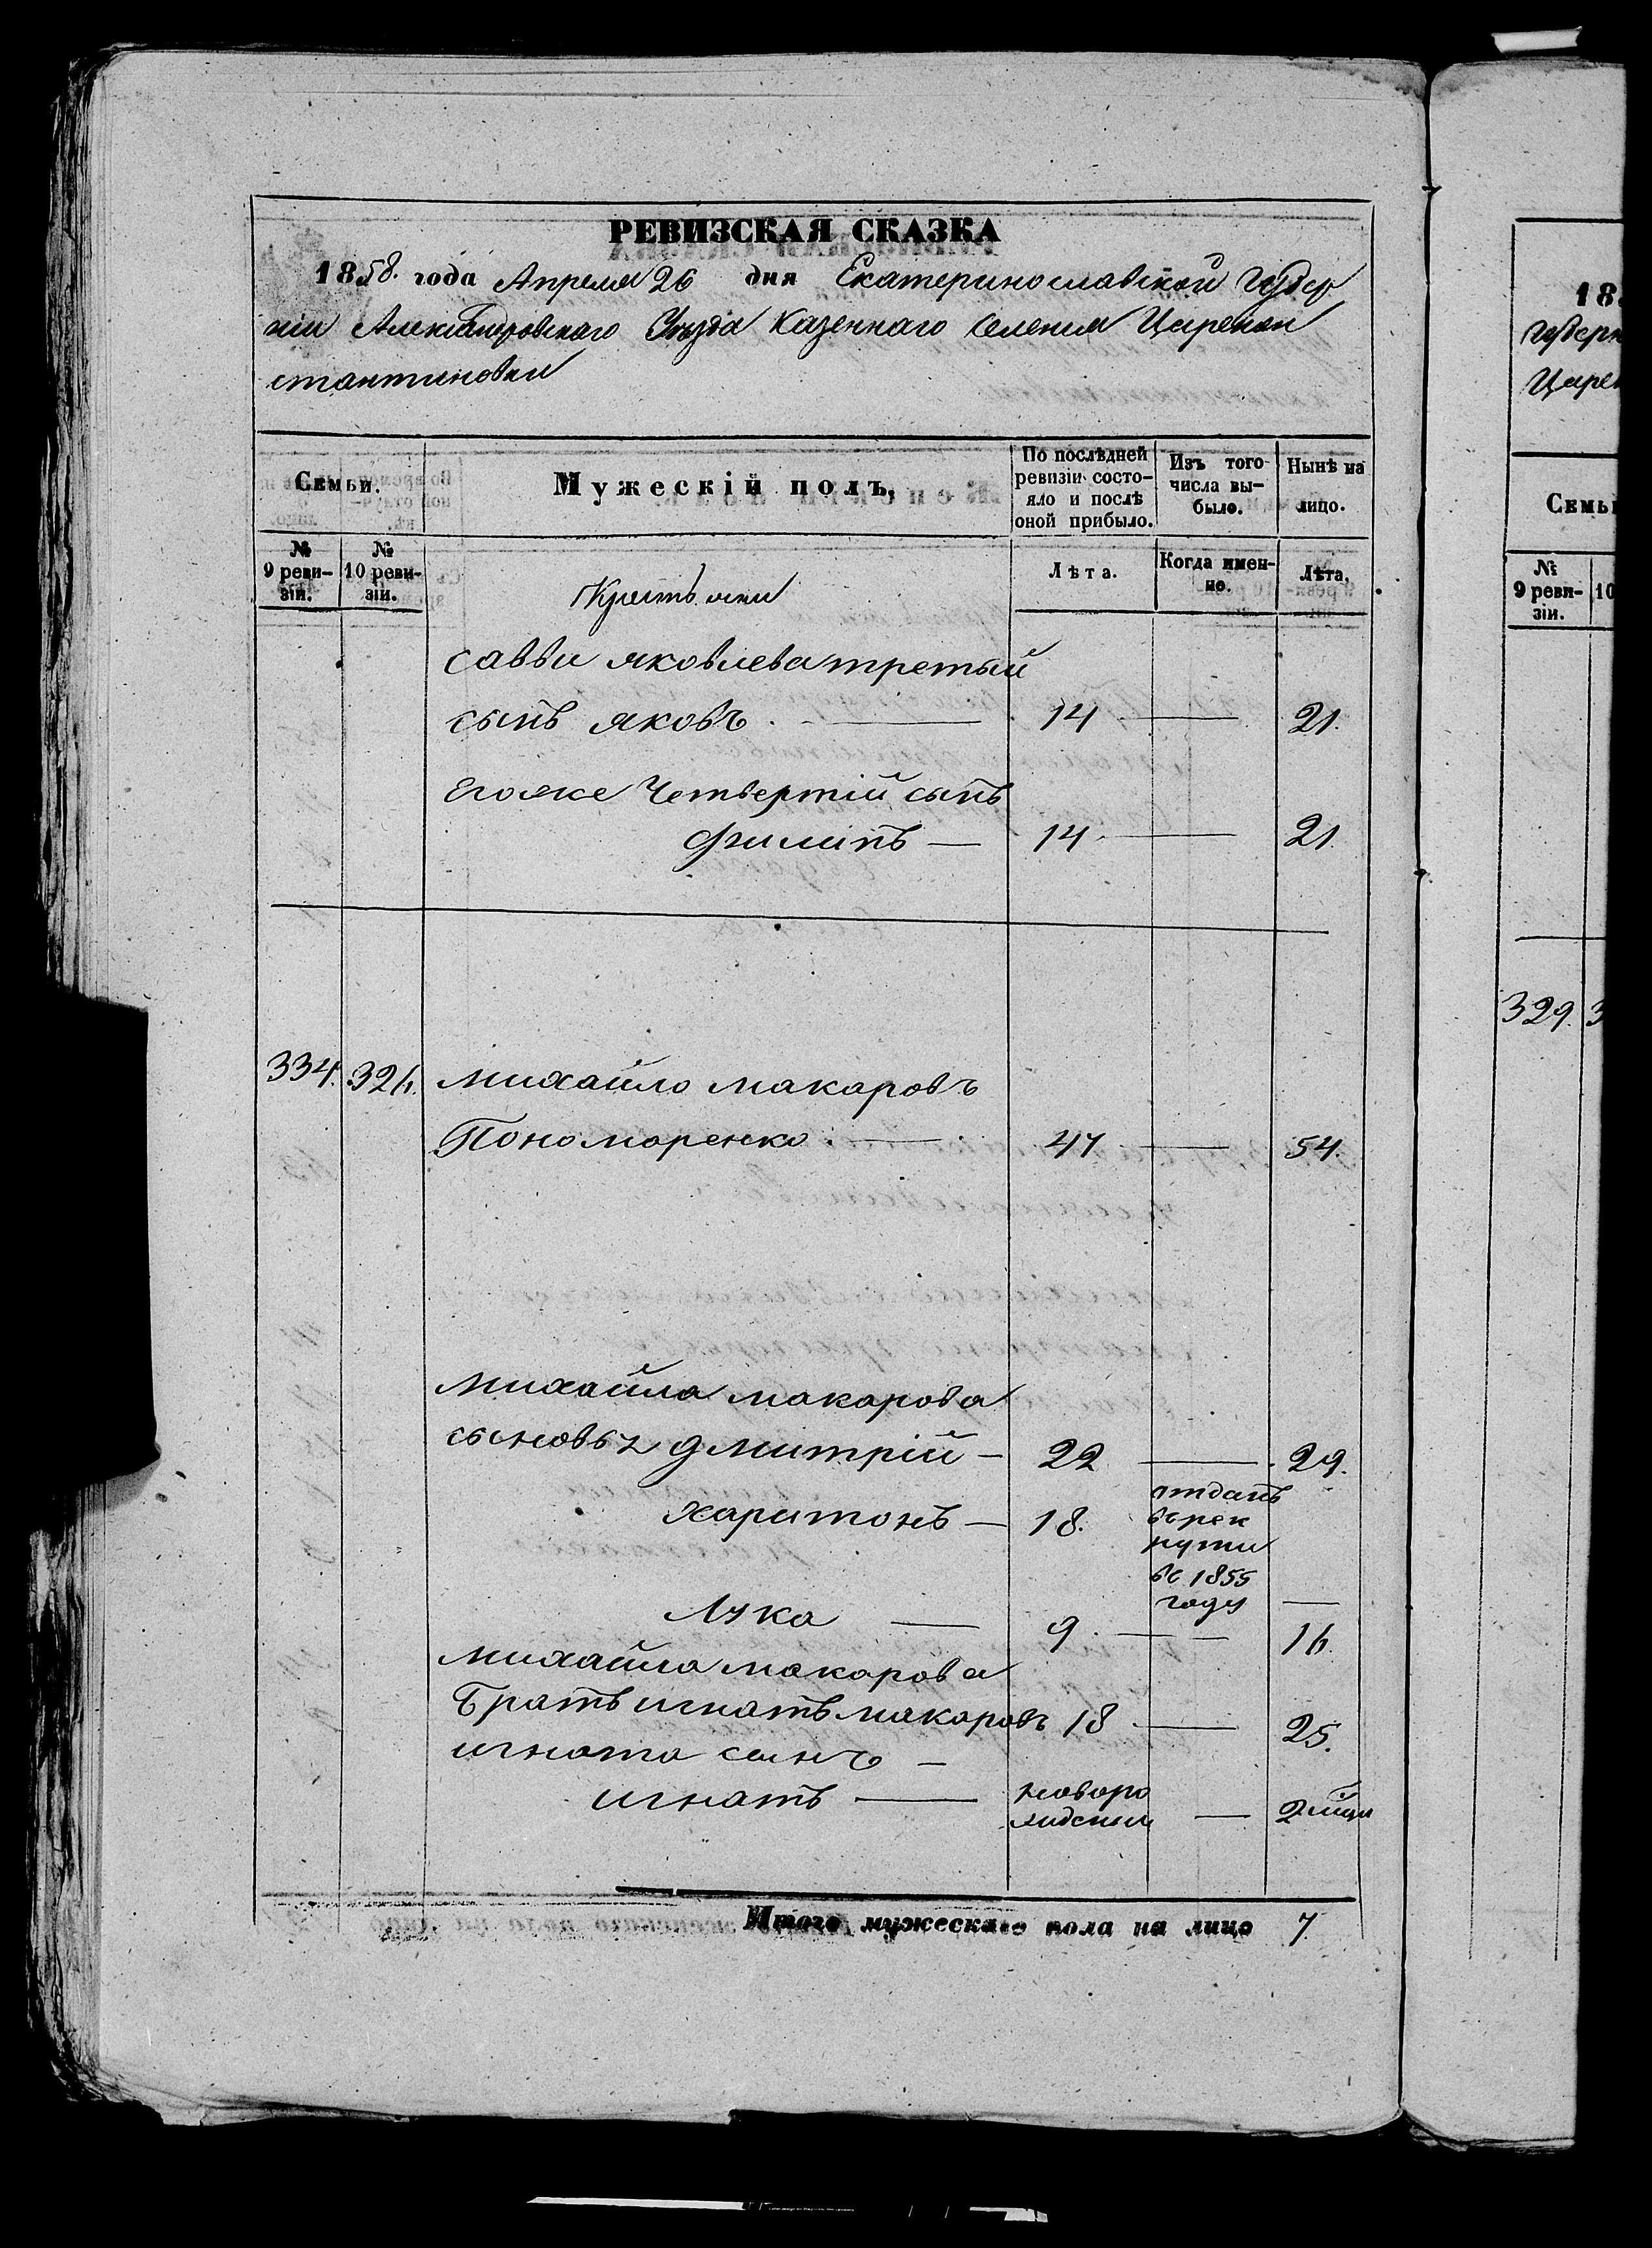 РЕВИЗСКАЯ СКАЗКА
1858. года Апреля 26 дня Екатеринославской Губер
нiи Александровскаго Уѣзда Казеннаго селенiя Царекон
стантиновки
Семьи.
Мужескiй полъ,
По послѣдней ревизiи состояло и послѣ оной прибыло.
Изъ того числа выбыло.
Нынѣ на лицо.
№ 9 ревизiи.
№ 10 ревизiи.
Лѣта.
Когда именно.
Лѣта.
савви яковлева третый
сынъ яковъ. — 14 — 21.
Егоже Четвертiй сынъ
филипъ — 14 — 21.
334. 326. михайло макаровъ
Пономоренко. — 47 — 54.
михайла макарова
сыновья дмитрiй — 22 — 29.
харитонъ — 18. отданъ
въ рек
рути
въ 1855
году —
Лука — 9. — 16.
михайла макарова
братъ игнатъ макаровъ 18 — 25.
игната сынъ —
игнатъ — новоро
жденый — 2 мѣця
Итого мужескаго пола на лицо 7.
18
Губерн
Царек
Семьи
№ 9 ревизiи.
10
329. 3